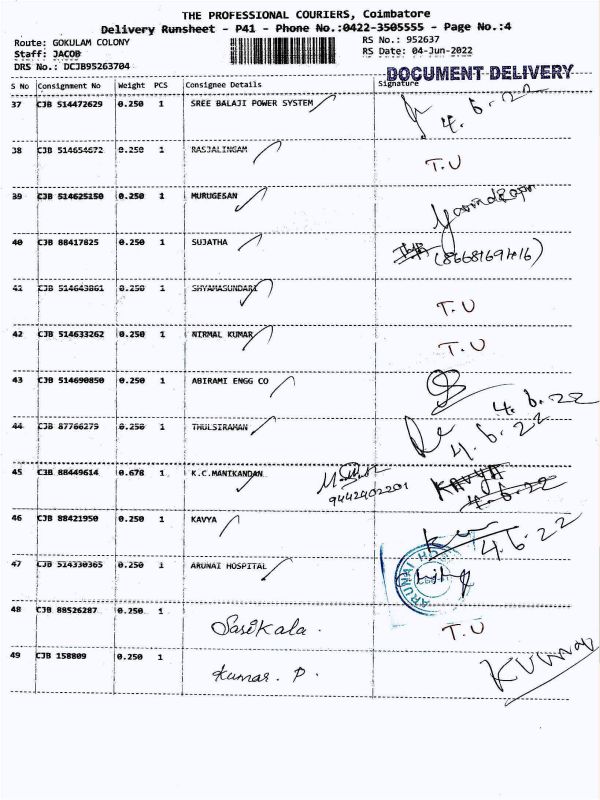 THE PROFESSIONAL COURIERS, Coimbatore
Delivery Runsheet - P41 - Phone No.:0422-3505555 - Page No.:4
Route: GOKULAM COLONY RS No.: 952637
Staff: JACOB RS Date: 04-Jun-2022
DRS No.: DCJB95263704 DOCUMENT DELIVERY
S No Consignment No Weight PCS Consignee Details Signature
37 CJB 514472629 0.250 1 SREE BALAJI POWER SYSTEM 4.6.22
38 CJB 514654672 0.250 1 RASJALINGAM T.U
39 CJB 514625150 0.250 1 MURUGESAN
40 CJB 88417825 0.250 1 SUJATHA (8668169416)
41 CJB 514643861 0.250 1 SHYAMASUNDARI T.U
42 CJB 514633262 0.250 1 NIRMAL KUMAR T.U
43 CJB 514690850 0.250 1 ABIRAMI ENGG CO 4.6.22
44 CJB 87766279 0.250 1 THULSIRAMAN 4.6.22
45 CJB 88449614 0.678 1 K.C.MANIKANDAN 9442402201 KAVYA 4.6.22
46 CJB 88421950 0.250 1 KAVYA 4.6.22
47 CJB 514330365 0.250 1 ARUNAI HOSPITAL
48 CJB 88526287 0.250 1 Sasikala. T.U
49 CJB 158809 0.250 1 Kumar. P. Kumar